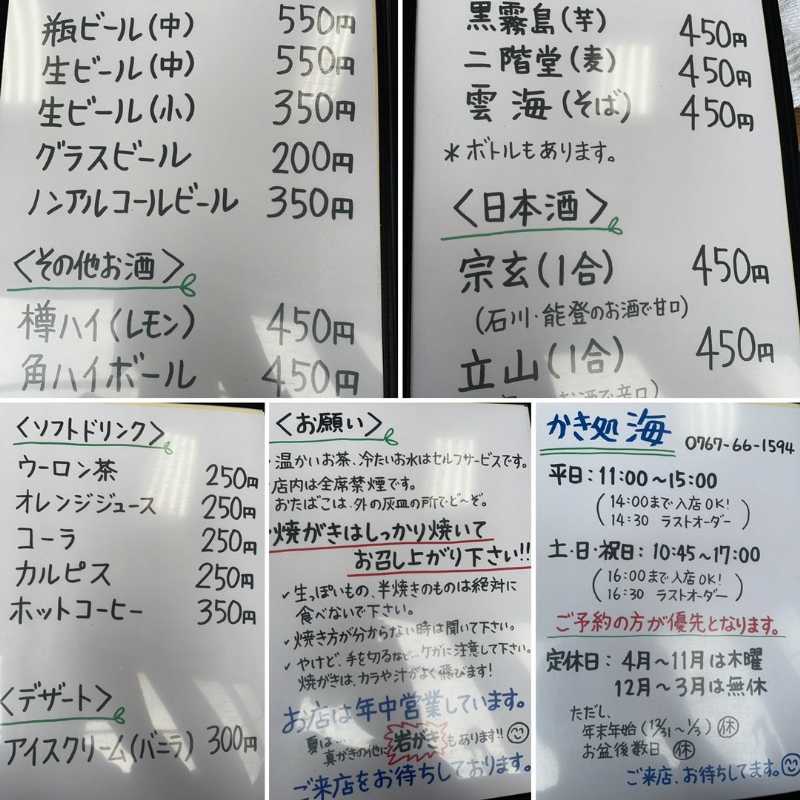 瓶ビール(中) 550円
生ビール(中) 550円
生ビール(小) 350円
グラスビール 200円
ノンアルコールビール 350円
〈その他お酒〉
樽ハイ(レモン) 450円
角ハイボール 450円
黒霧島(芋) 450円
二階堂(麦) 450円
雲海(そば) 450円
*ボトルもあります。
〈日本酒〉
宗玄(1合) 450円
(石川・能登のお酒で甘口)
立山(1合) 450円
お酒で辛口)
〈ソフトドリンク〉
ウーロン茶 250円
オレンジジュース 250円
コーラ 250円
カルピス 250円
ホットコーヒー 350円
〈デザート〉
アイスクリーム(バニラ) 300円
〈お願い〉
温かいお茶、冷たいお水はセルフサービスです。
店内は全席禁煙です。
おたばこは、外の灰皿の所でど〜ぞ。
焼がきはしっかり焼いて
お召し上がり下さい!!
✓生っぽいもの、半焼きのものは絶対に
食べないで下さい。
✓焼き方が分からない時は聞いて下さい。
✓やけど、手を切るなどケガに注意して下さい。
焼がきは、カラや汁がよく飛びます!
お店は年中営業しています。
夏は…
真がきの他に岩がきもあります!!
ご来店をお待ちしております。
かき処 海 0767-66-1594
平日:11:00〜15:00
(14:00まで入店OK!
14:30 ラストオーダー)
土・日・祝日:10:45〜17:00
(16:00まで入店OK!
16:30 ラストオーダー)
ご予約の方が優先となります。
定休日:4月〜11月は木曜
12月〜3月は無休
ただし、
年末年始(12/31〜1/3)休
お盆後数日 休
ご来店、お待ちしてます。